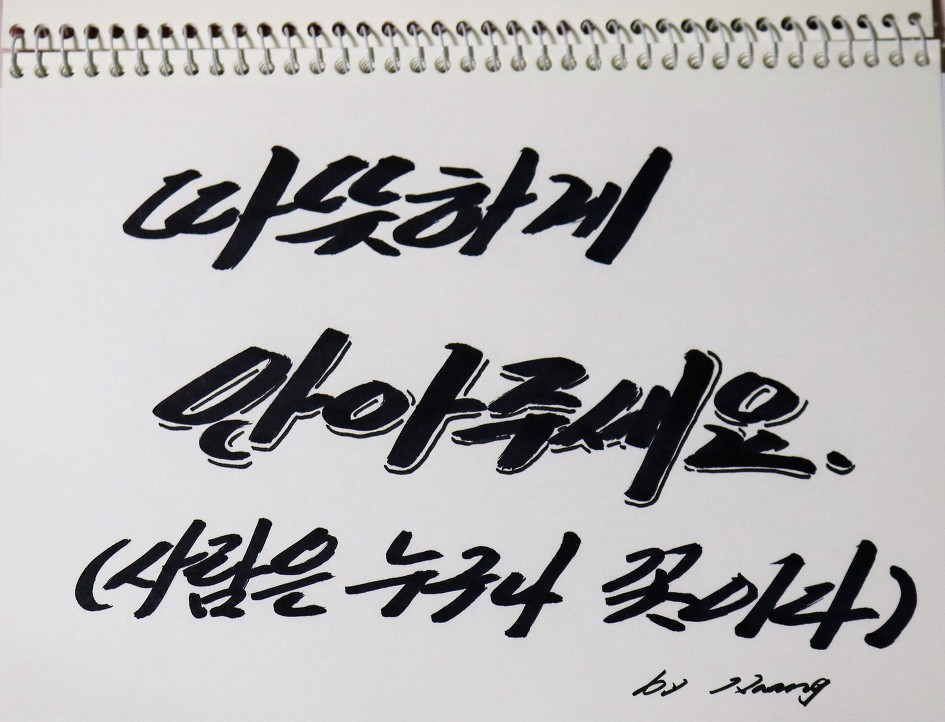 따뜻하게
안아주세요.
(사람은 누구나 꽃이다)
by